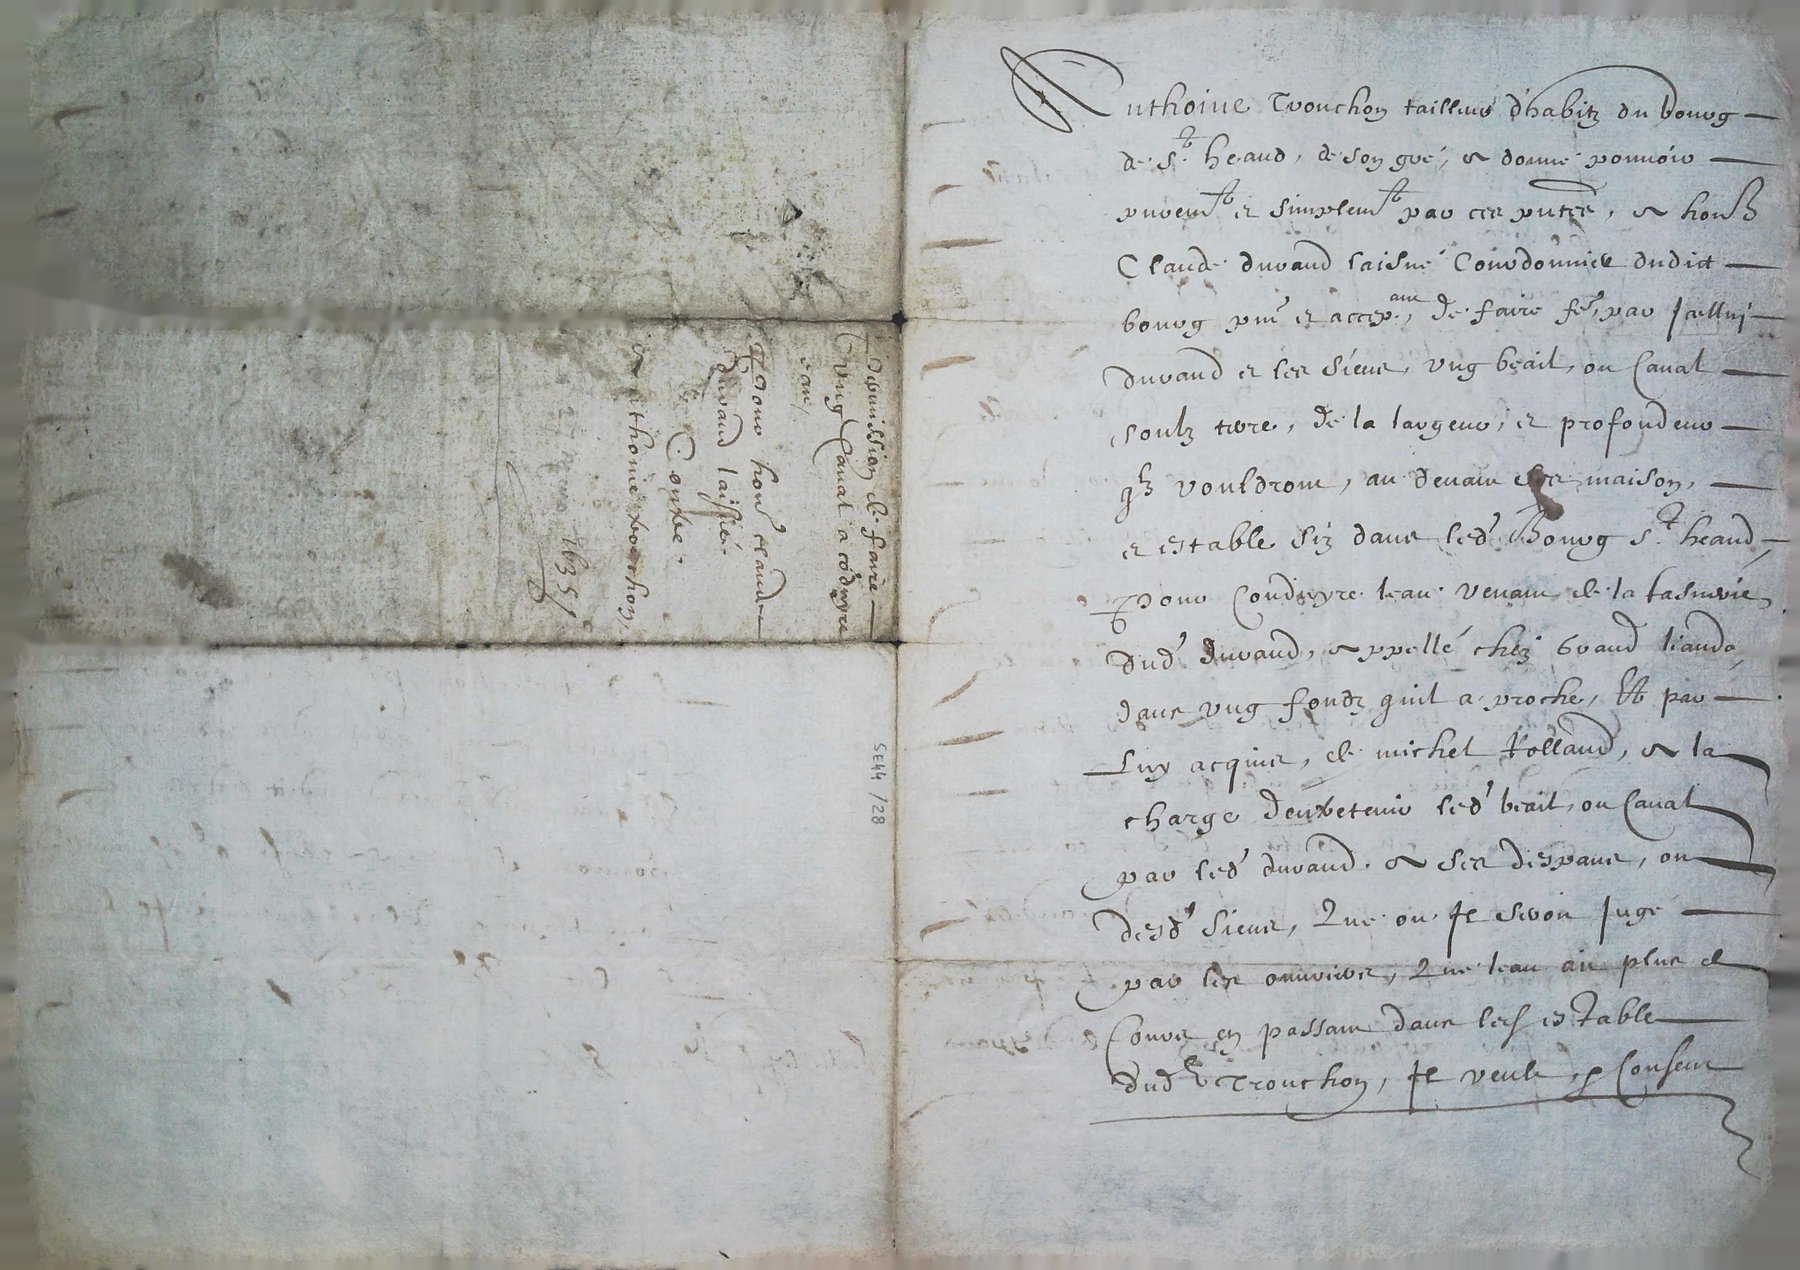 Anthoine Tronchon tailleur d'habitz du bourg
de St heand, de son gré, a donné pouvoir
puremt et simplemt par ces pntes, a honble
Claude durand laisné Courdonnier dudict
bourg pnt et accepant, de faire fe, par Icelluj
durand et les siens, ung beail, ou Canal
soulz terre, de la largeur, et profondeur
qlz vouldront, au devant ses maison,
et estable siz dans led' Bourg St heand,
pour Conduyre leau venant de la
dud' durand, appellé chez Grand
dans ung fondz quil a proche, Et par
Luy acquis, de michel Rolland, a la
charge dentretenir led' beail, ou Canal
par led' durand a ses despans, ou
desd' siens, Que ou Il seroit Juge
par les ouvriers, Que leau aie plus de
Cours en passant dans les estable
dud' Tronchon, Il veult, Consent
permission de faire
ung Canal a coduyre
eau,
Pour hon' claude
durand laisné.
Contre.
anthoine tronchon,
1635
SE44 /28